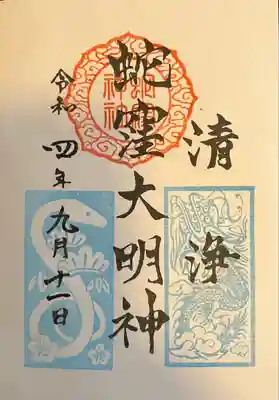 清浄
蛇窪大明神
令和四年九月十一日